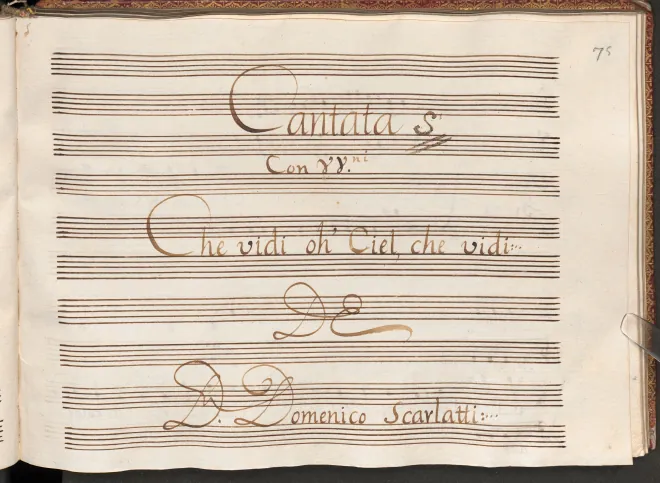 75
Cantata S
Con VV.ni
Che vidi oh' Ciel, che vidi:··
DE
D. Domenico Scarlatti:···